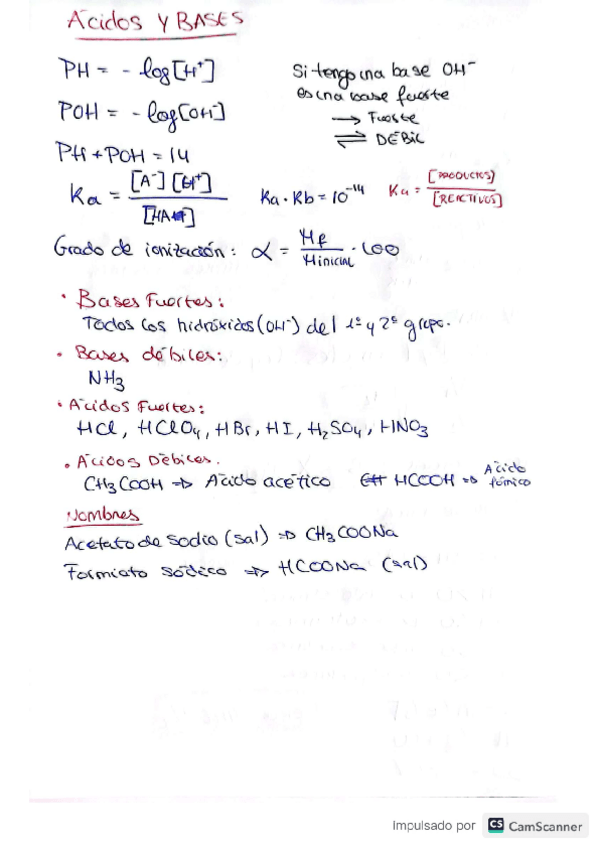 ÁCIDOS Y BASES
PH = - log[H⁺]
POH = - log[OH⁻]
PH + POH = 14
Ka = [A⁻] [H⁺] / [HA]
Si tengo una base OH⁻
es una base fuerte
→ Fuerte
⇌ DÉBIL
Ka · Kb = 10⁻¹⁴
Ka = [PRODUCTOS] / [REACTIVOS]
Grado de ionización: α = Mf / Minicial · 100
· Bases Fuertes:
Todos los hidróxidos (OH⁻) del 1º y 2º grupo.
· Bases débiles:
NH₃
· Ácidos Fuertes:
HCl, HClO₄, HBr, HI, H₂SO₄, HNO₃
· Ácidos Débiles.
CH₃COOH ⇒ Ácido acético HCOOH ⇒ Ácido fómico
Nombres
Acetato de Sodio (sal) ⇒ CH₃COONa
Formiato sódico ⇒ HCOONa (sal)
Impulsado por CS CamScanner